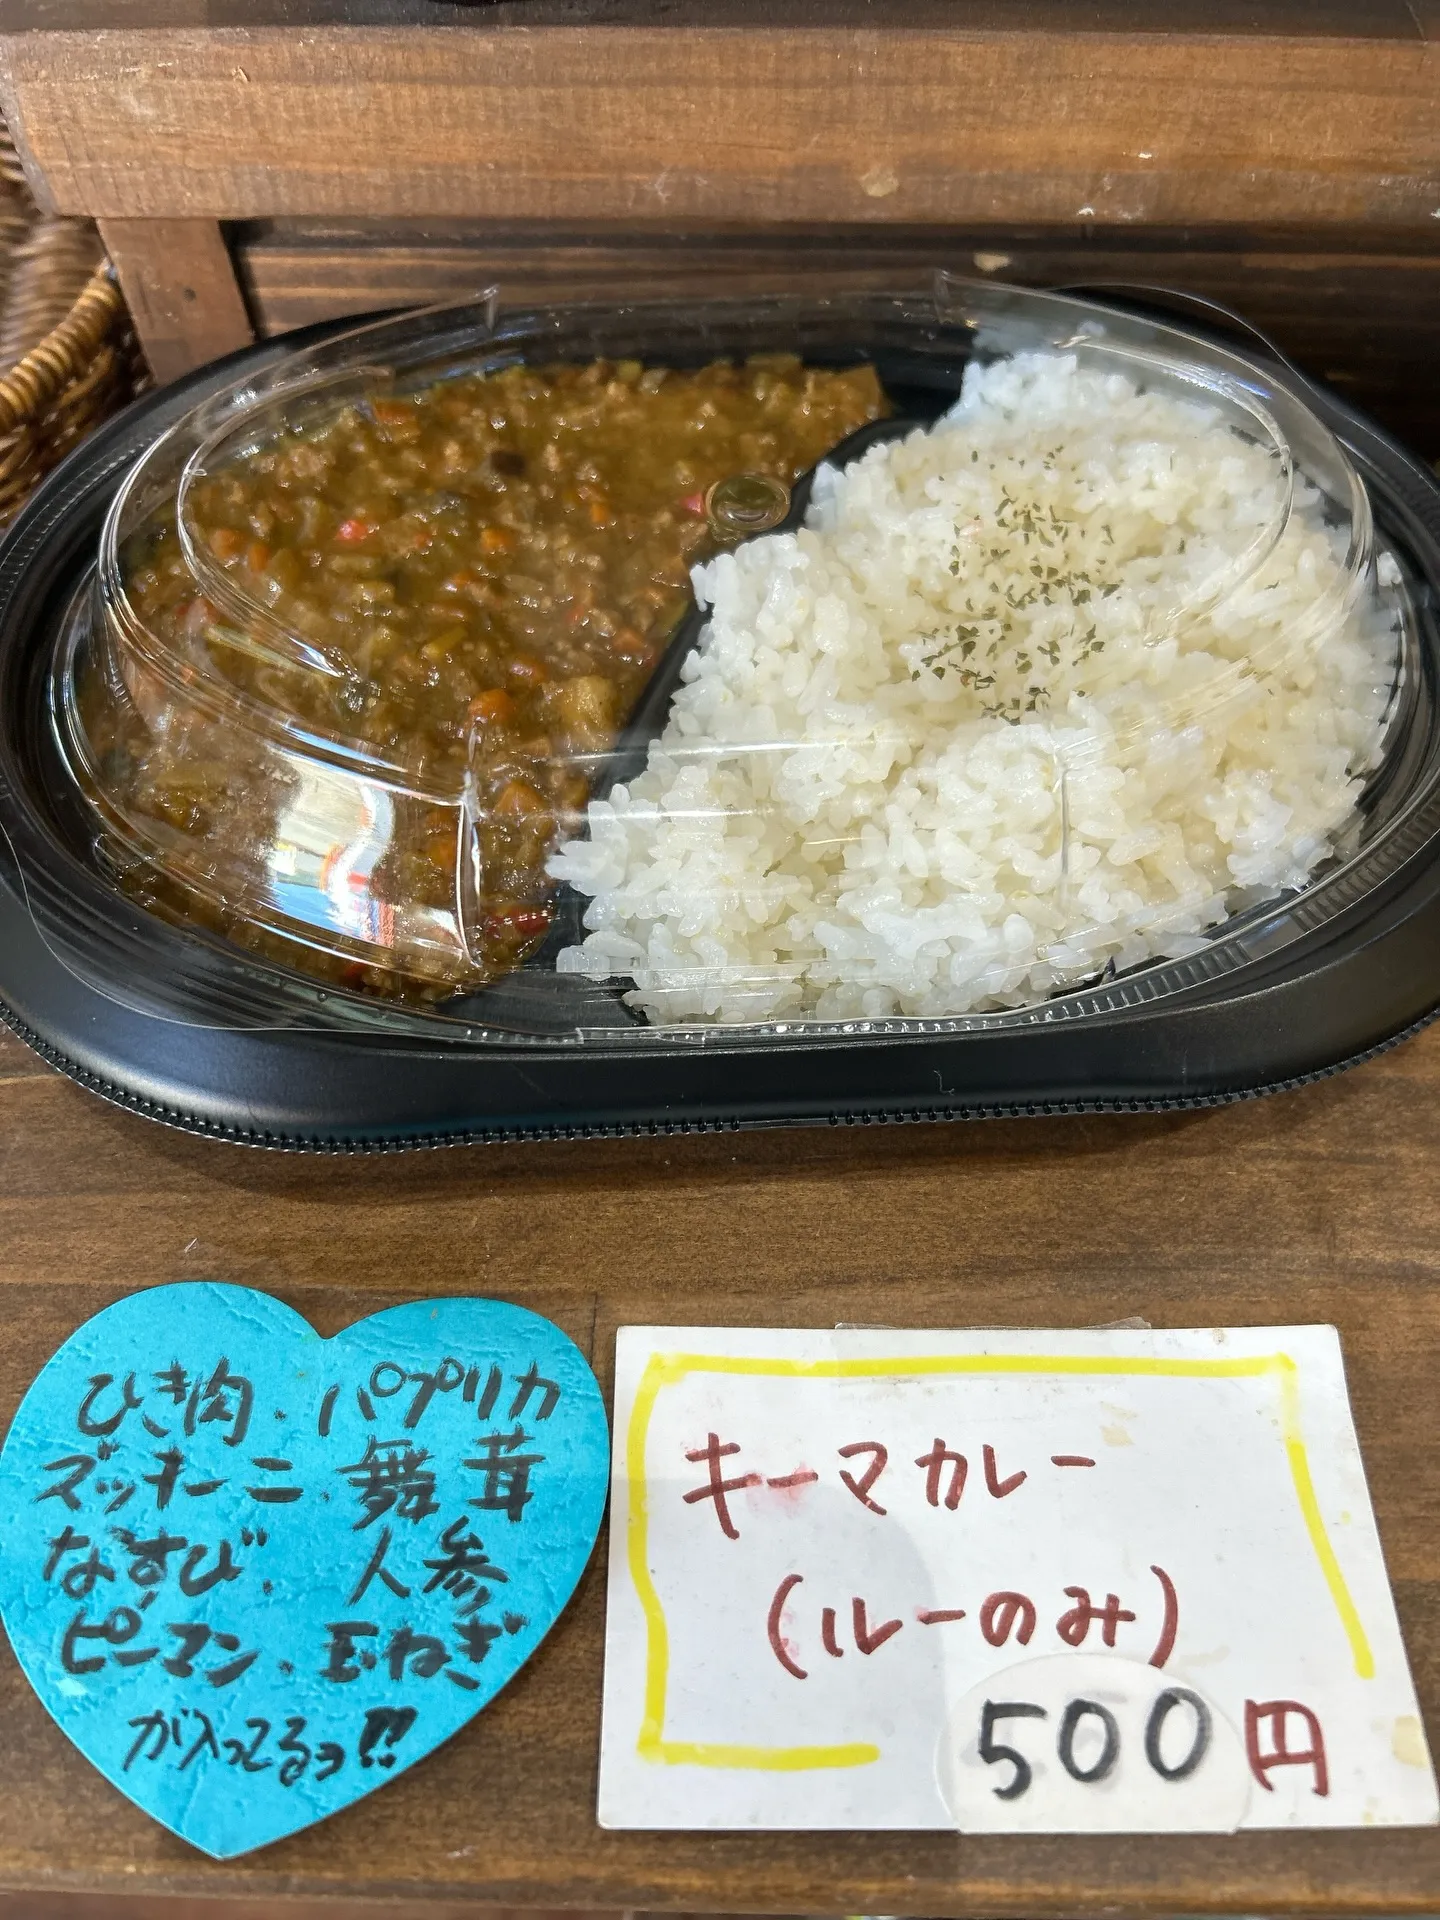 ひき肉・パプリカ
ズッキーニ・舞茸
なすび・人参
ピーマン・玉ねぎ
が入ってるっ!!
キーマカレー
(ルーのみ)
500円